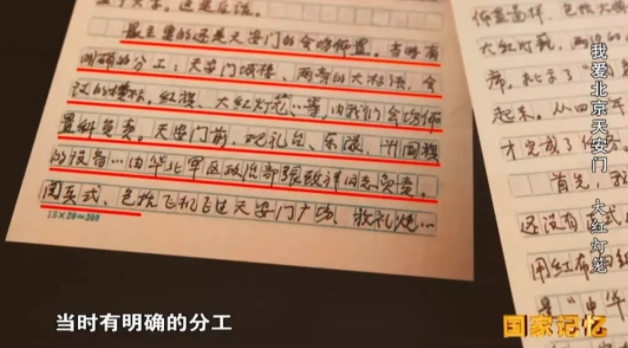 最主要的还是天安门的会场佈置。当时有
明确的分工：天安门城楼、两旁的大标语、会
议的横标、红旗、大红灯笼…等，由我们会场佈
置科负责。天安门前、观礼台、乐队、升国旗
的设备…由华北军区政治部张致祥同志负责。
阅兵式、包括飞机飞过天安门广场、放礼炮…
15×20=300
大红灯笼，两边的
席，扎了
起来。从四
才完成了任务。
首先，我
还没有正式
用红布
是“中华
我爱北京天安门 大红灯笼
当时有明确的分工
国家记忆